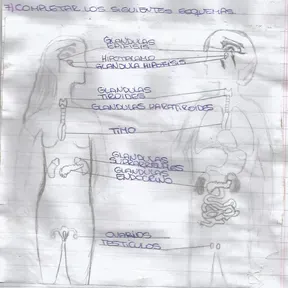 7) COMPLETAR LOS SIGUIENTES ESQUEMAS.
GLANDULAS
EPIFISIS
HIPOTALAMO
GLANDULA HIPOFISIS
GLANDULAS
TIROIDES
GLANDULAS PARATIROIDES
TIMO
GLANDULAS
SUPRARRENALES
GLANDULAS
ENDOCRINO
OVARIOS
TESTÍCULOS